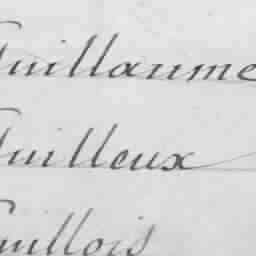 Guillaume
Guilleux
Guillois